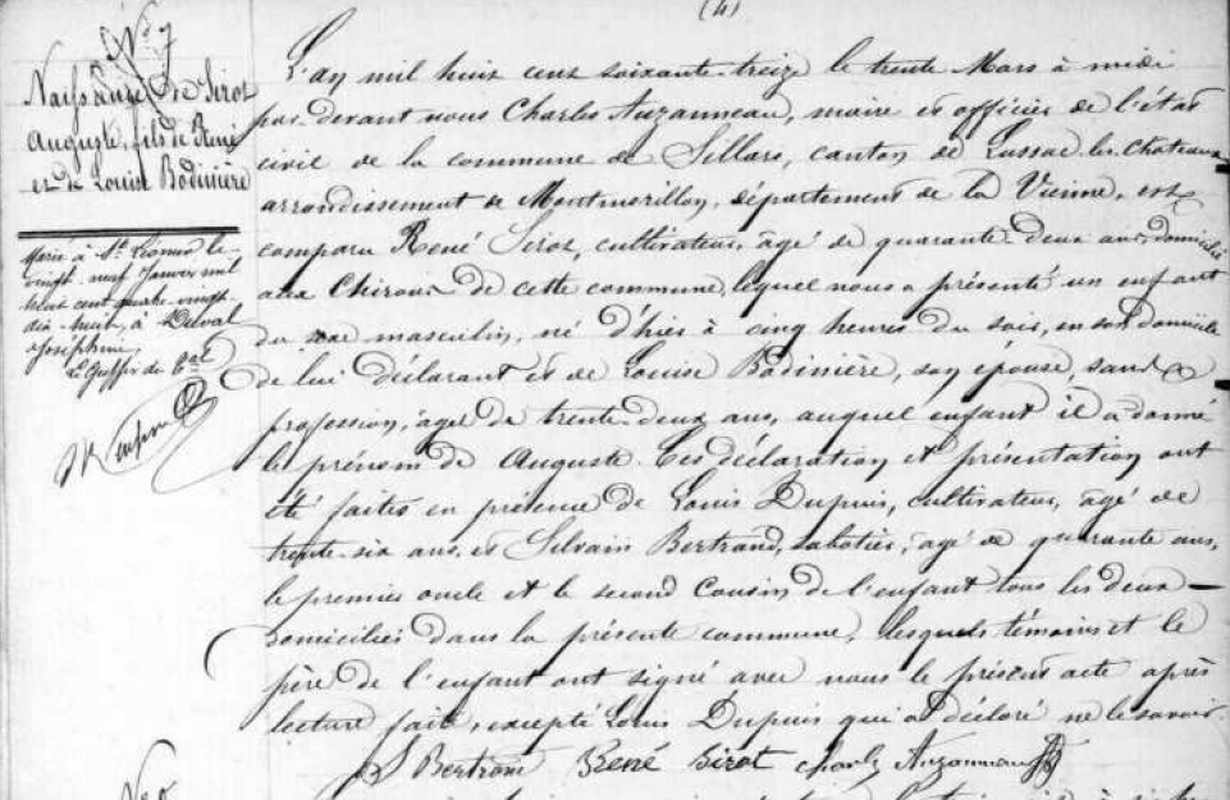 (4)
N° 7
Naissance de Sirot
Auguste, fils de René
et de Louise Bodinière
Marié à St Léomer le
vingt-neuf Janvier mil
huit cent quatre-vingt-
dix-huit, à Duval
Joséphine,
Le Greffier du Bal
L'an mil huit cent soixante-treize le trente Mars à midi
par-devant nous Charles Auzanneau, maire et officier de l'état
civil de la commune de Sillars, canton de Lussac-les-Chateaux
arrondissement de Montmorillon, département de la Vienne, est
comparu René Sirot, cultivateur, âgé de quarante-deux ans, domicilié
aux Chiroux de cette commune, lequel nous a présenté un enfant
du sexe masculin, né d'hier à cinq heures du soir, en son domicile
de lui déclarant et de Louise Bodinière, son épouse, sans
profession, âgée de trente-deux ans, auquel enfant il a donné
le prénom de Auguste. Ces déclaration et présentation ont
été faites en présence de Louis Dupuis, cultivateur, âgé de
trente-six ans, et Silvain Bertrand, sabotier, âgé de quarante ans,
le premier oncle et le second Cousin de l'enfant tous les deux
domiciliés dans la présente commune, lesquels témoins et le
père de l'enfant ont signé avec nous le présent acte après
lecture faite, excepté Louis Dupuis qui a déclaré ne le savoir
S Bertrand René Sirot Charles Auzanneau
No